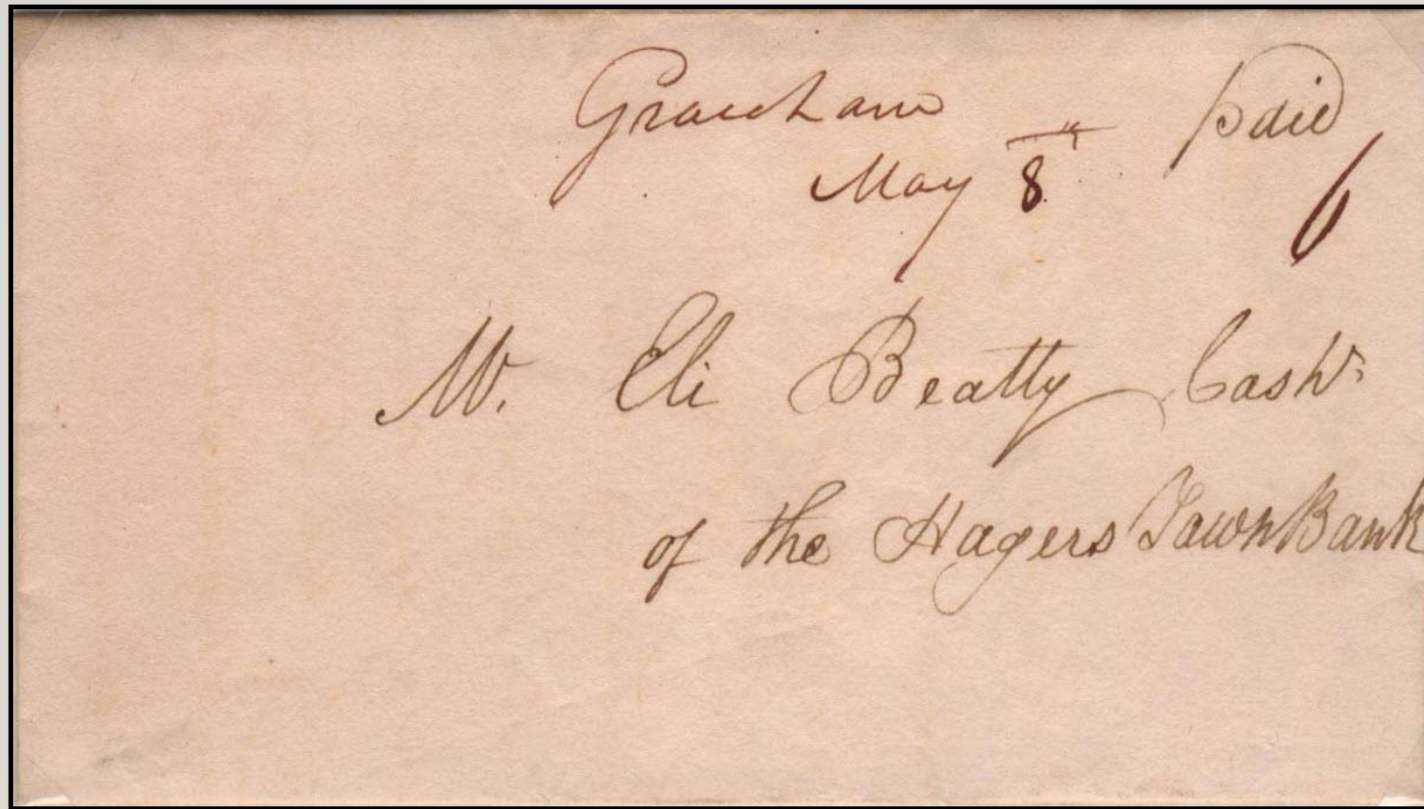 Graceham paid
May 8th 6
Mr. Eli Beatty Cashr.
of the Hagers Town Bank